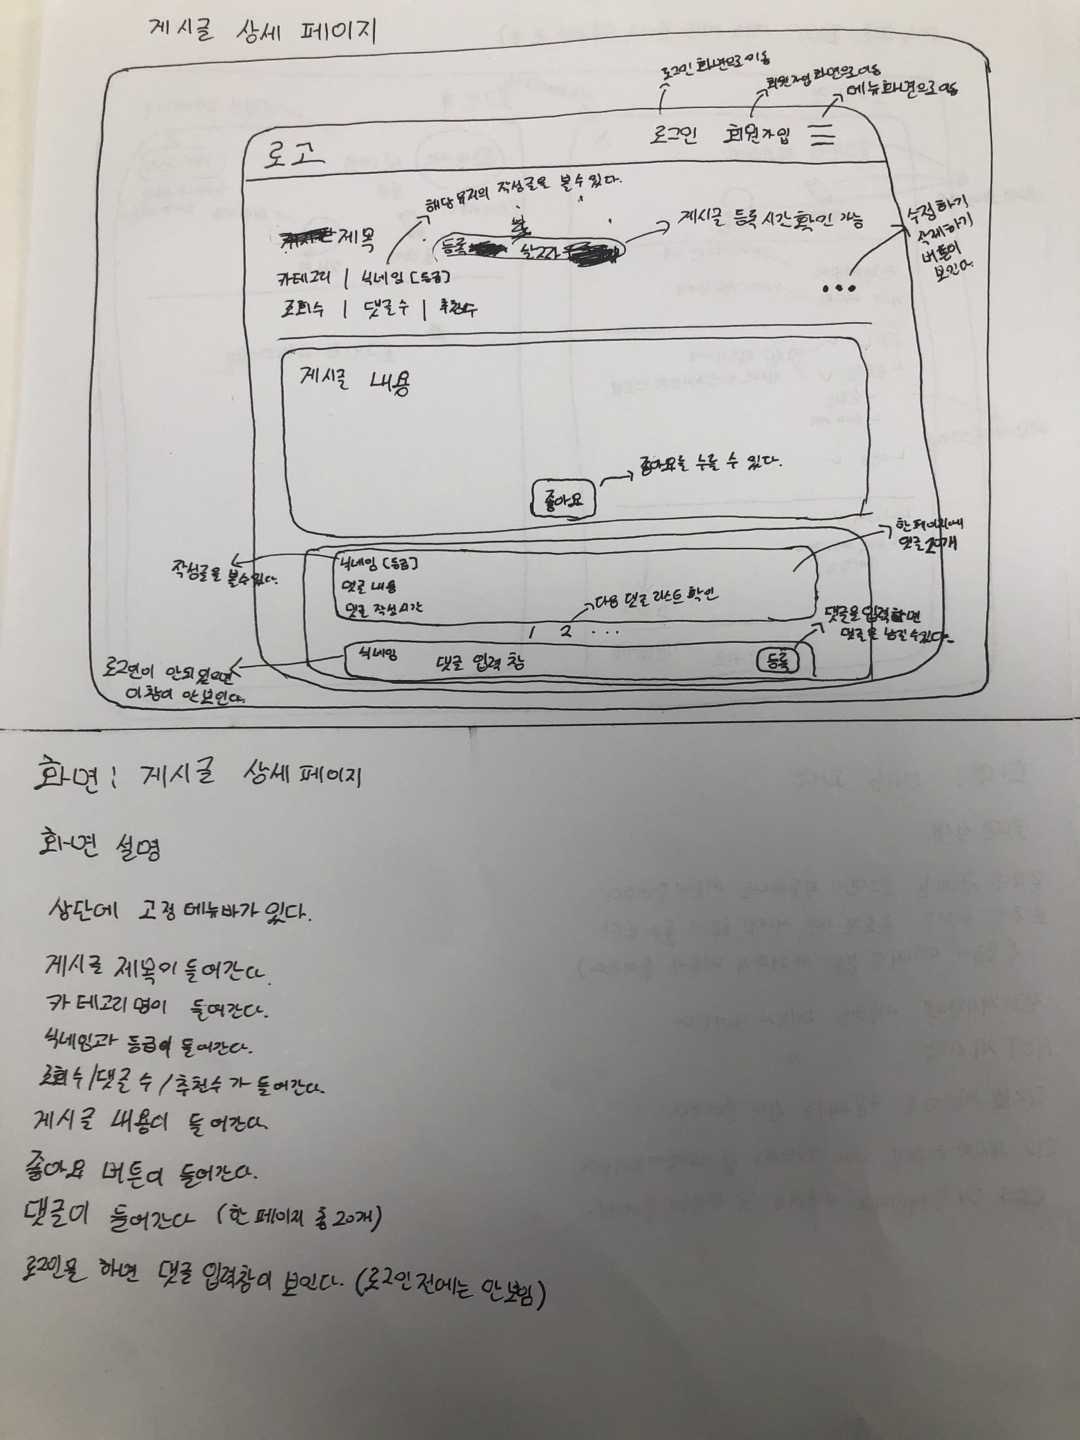 게시글 상세 페이지
로그인 화면으로 이동
회원가입 화면으로 이동
메뉴 화면으로 이동
로고
로그인 회원가입
해당 유저의 작성글을 볼 수 있다.
제목
등록
게시글 등록 시간 확인 가능
수정하기
삭제하기
버튼이
보인다
카테고리 | 닉네임 [등급]
...
조회수 | 댓글 수 | 추천수
게시글 내용
좋아요를 누를 수 있다.
좋아요
한 페이지에
댓글 20개
작성글을 볼 수 있다.
닉네임 [등급]
댓글 내용
댓글 작성 시간
다음 댓글 리스트 확인
1 2 ...
댓글을 입력하면
댓글을 남길 수 있다.
닉네임 댓글 입력 창 등록
로그인이 안되있으면
이 창이 안보인다.
화면: 게시글 상세 페이지
화면 설명
상단에 고정 메뉴바가 있다.
게시글 제목이 들어간다.
카테고리명이 들어간다.
닉네임과 등급이 들어간다.
조회수/댓글 수/추천수가 들어간다.
게시글 내용이 들어간다.
좋아요 버튼이 들어간다.
댓글이 들어간다 (한 페이지 총 20개)
로그인을 하면 댓글 입력창이 보인다. (로그인 전에는 안보임)